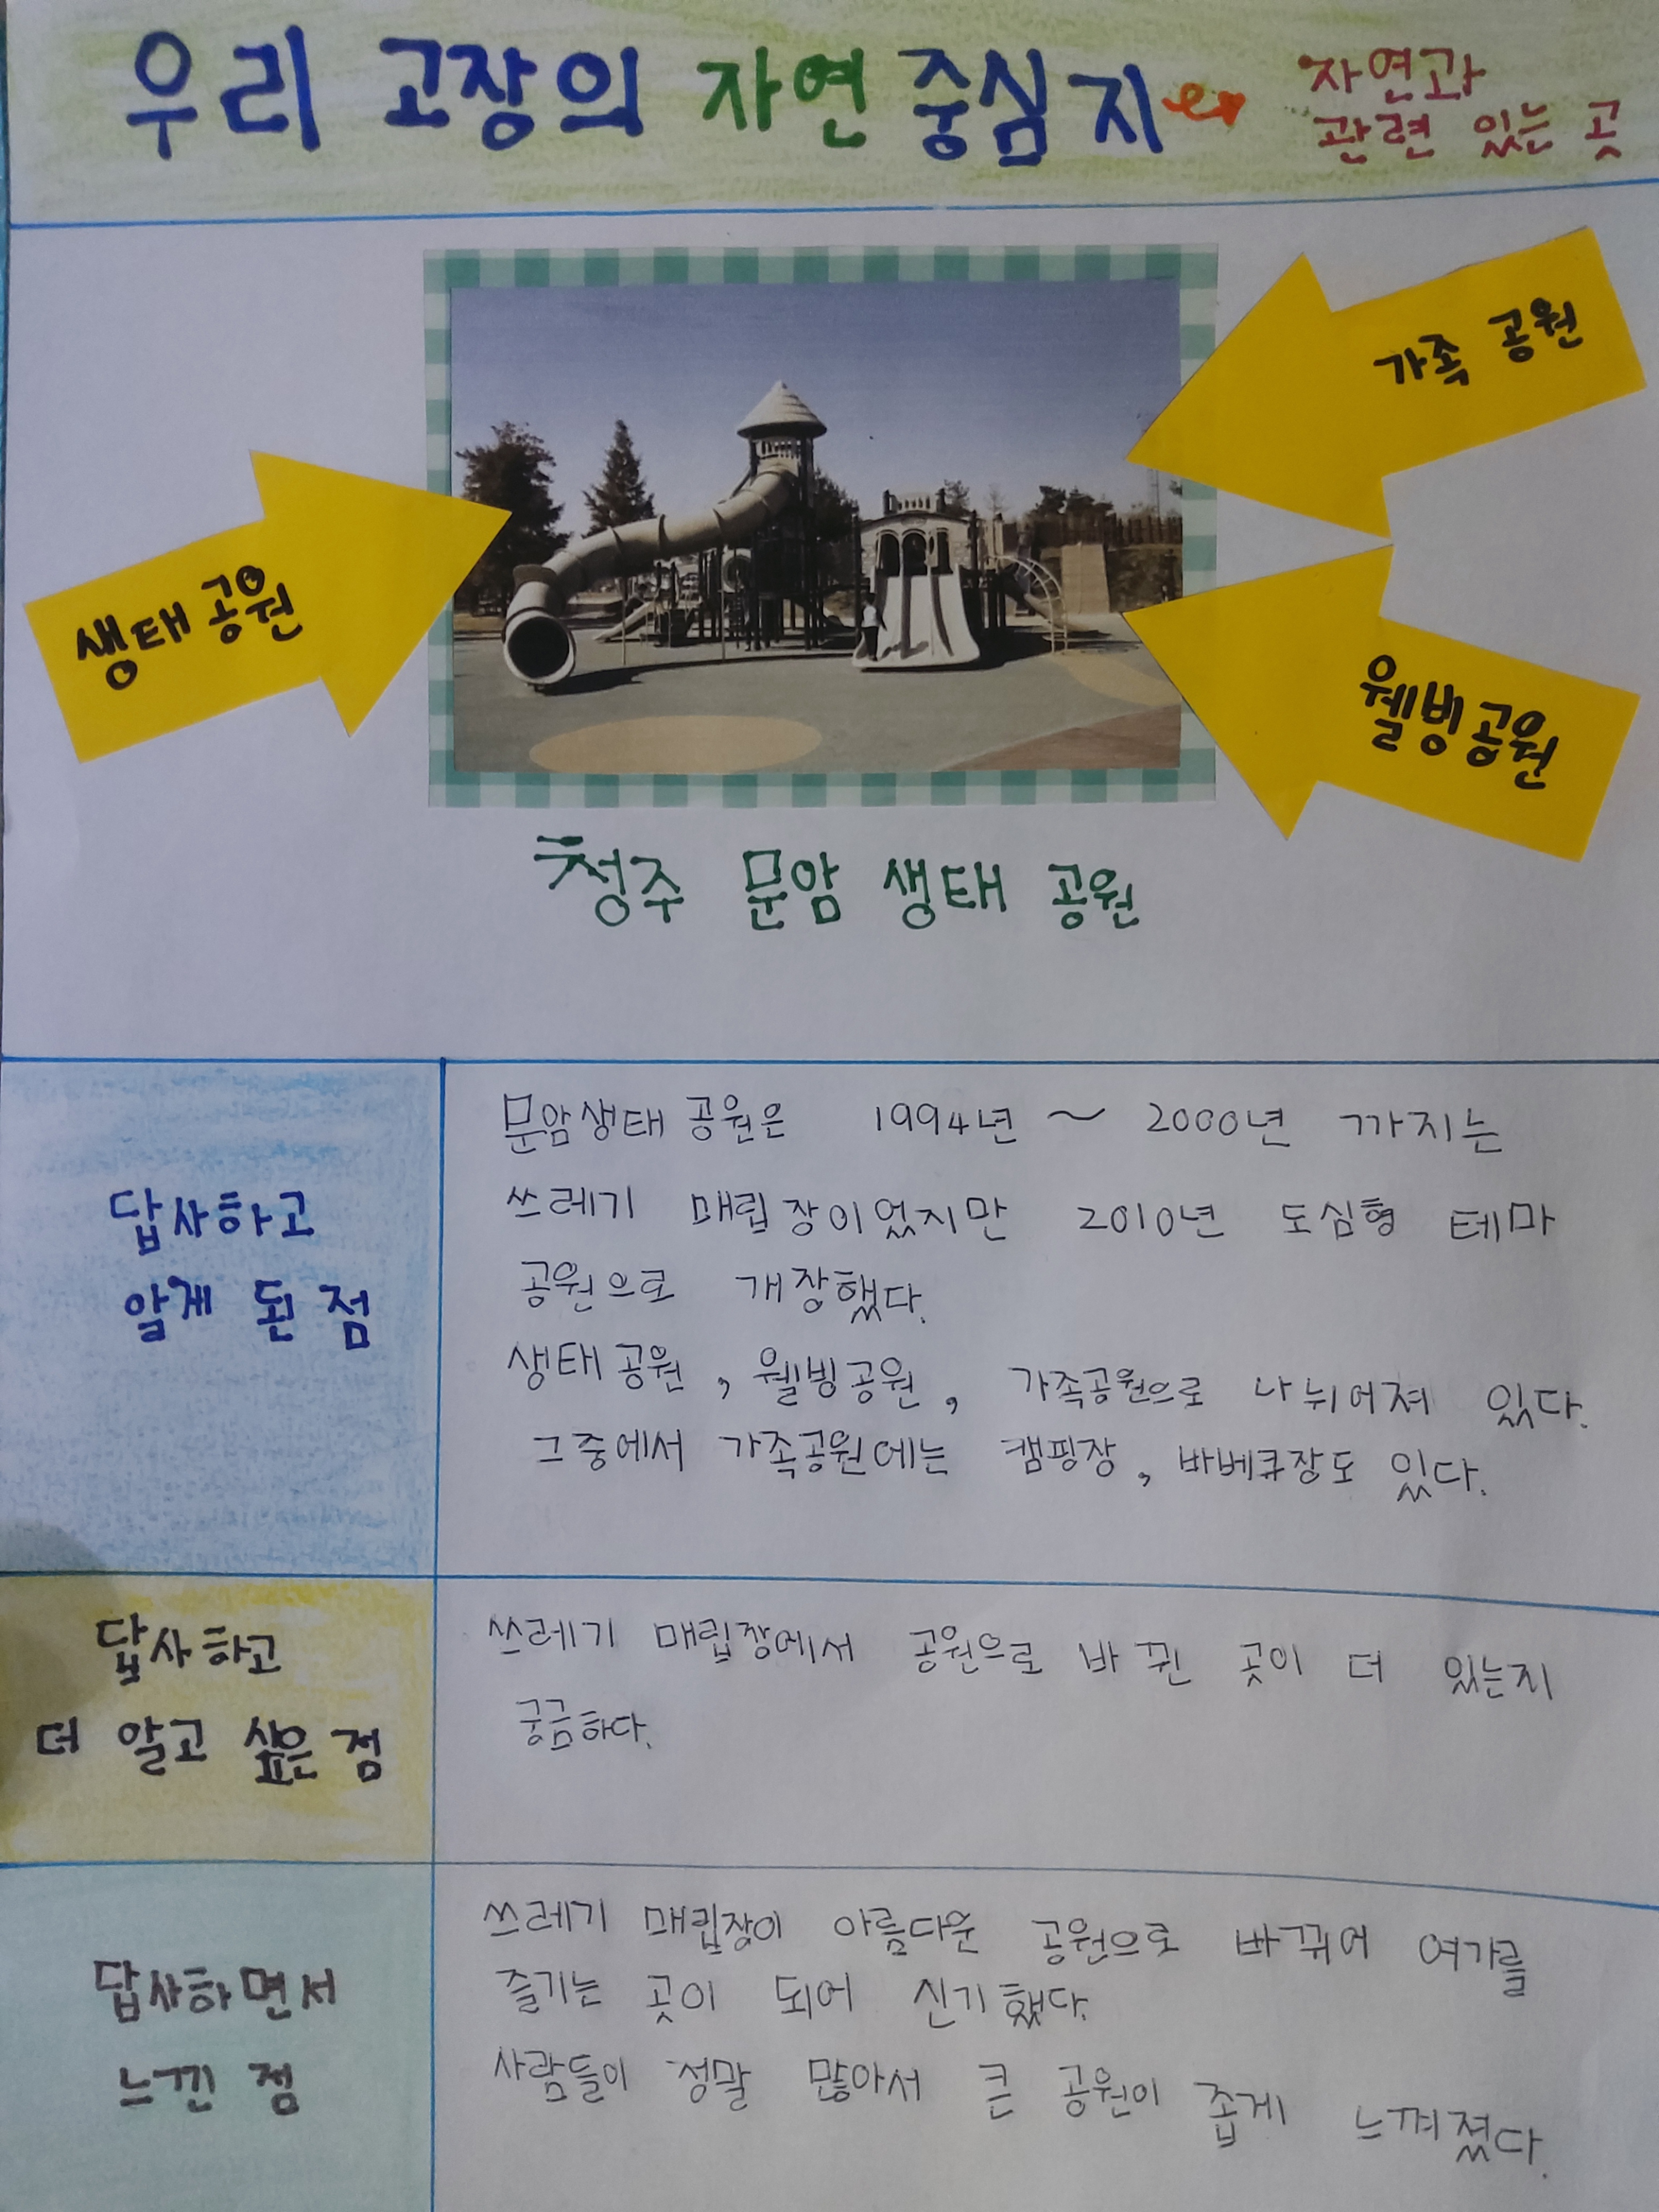 우리 고장의 자연 중심지
자연과
관련 있는 곳
가족 공원
생태공원
웰빙공원
청주 문암 생태 공원
답사하고
알게 된 점
문암생태 공원은 1994년 ~ 2000년 까지는
쓰레기 매립장이었지만 2010년 도심형 테마
공원으로 개장했다.
생태공원, 웰빙공원, 가족공원으로 나뉘어져 있다.
그중에서 가족공원에는 캠핑장, 바베큐장도 있다.
답사하고
더 알고 싶은 점
쓰레기 매립장에서 공원으로 바뀐 곳이 더 있는지
궁금하다.
답사하면서
느낀 점
쓰레기 매립장이 아름다운 공원으로 바뀌어 여가를
즐기는 곳이 되어 신기했다.
사람들이 정말 많아서 큰 공원이 좁게 느껴졌다.